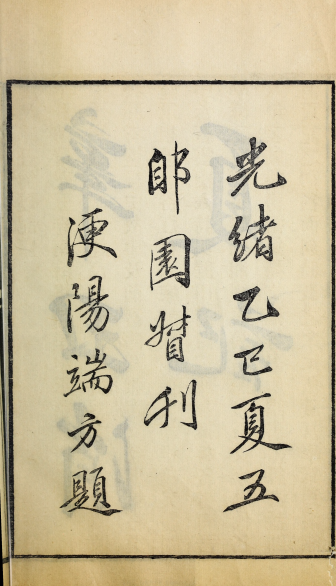 光緒乙巳夏五
郋園督刊
浭陽端方題